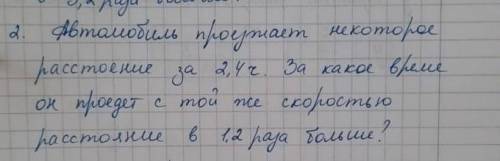 3,2 раза
2. Автомобиль проезжает некоторое
расстоение за 2,4 ч. За какое време
он проедет с той же скоростью
расстояние в 1,2 раза больше?